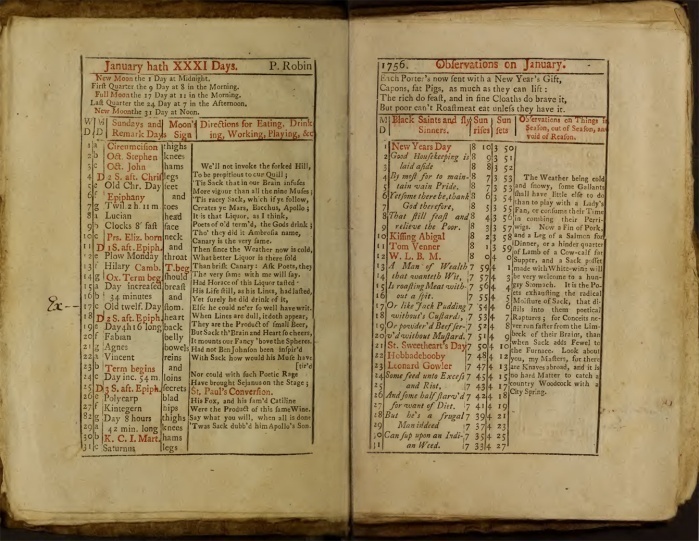 January hath XXXI Days. P. Robin
New Moon the 1 Day at Midnight.
First Quarter the 9 Day at 8 in the Morning.
Full Moon the 17 Day at 11 in the Morning.
Last Quarter the 24 Day at 7 in the Afternoon.
New Moon the 31 Day at Noon.
W D
M D
Sundays and Remark Days
Moon's Signs
Directions for Eating, Drinking, Working, Playing, &c
1 a Circumcision thighs
2 b Oct. Stephen knees
3 c Oct. John hams
4 D 2 S. aft. Christ legs
5 e Old Chr. Day feet
6 f Epiphany and
7 g Twil. 2 h. 11 m toes
8 a Lucian head
9 b Clocks 8' fast face
10 c Prs. Eliz. born neck
11 D 1 S. aft. Epiph. and
12 e Plow Monday throat
13 f Hilary Camb. T. beg.
14 g Ox. Term beg. should
15 a Day increased breast
16 b 34 minutes and
Ex— 17 c Old twelf. Day stom.
18 D 2 S. aft. Epiph. heart
19 e Day 4h 16 long back
20 f Fabian belly
21 g Agnes bowels
22 a Vincent reins
23 b Term begins and
24 c Day inc. 54 m loins
25 D 3 S. aft. Epiph. secrets
26 e Polycarp blad
27 f Kintegern hips
28 g Day 8 hours thighs
29 a 42 min. long knees
30 b K. C. I. Mart. hams
31 c Saturnus legs
We'll not invoke the forked Hill,
To be propitious to our Quill;
'Tis Sack that in our Brain infuses
More vigour than all the nine Muses;
'Tis racey Sack, which if ye follow,
Creates ye Mars, Bacchus, Apollo;
It is that Liquor, as I think,
Poets of old term'd, the Gods drink;
Tho' they did it Ambrosia name,
Canary is the very same.
Then since the Weather now is cold,
What better Liquor is there sold
Than brisk Canary: Ask Poets, they
The very same with me will say.
Had Horace of this Liquor tasted
His Life still, as his Lines, had lasted,
Yet surely he did drink of it,
Else he could ne'er so well have writ.
When Lines are dull, it doth appear,
They are the Product of small Beer,
But Sack th' Brain and Heart so cheers,
It mounts our Fancy 'bove the Spheres.
Had not Ben Johnson been inspir'd
With Sack how would his Muse have
[tir'd
Nor could with such Poetic Rage
Have brought Sejanus on the Stage;
St. Paul's Conversion.
His Fox, and his fam'd Catiline
Were the Product of this same Wine.
Say what you will, when all is done
'Twas Sack dubb'd him Apollo's Son.
1756. Observations on January.
Each Porter's now sent with a New Year's Gift,
Capons, fat Pigs, as much as they can lift:
The rich do feast, and in fine Cloaths do brave it,
But poor can't Roastmeat eat unless they have it.
M D
Black Saints and Sinners.
Sun rises
Sun sets
Observations on Things in Season, out of Season, and void of Reason.
1 New Years Day 8 10 3 50
2 Good Housekeeping is 8 9 3 51
3 laid aside 8 8 3 52
4 By most for to main- 8 7 3 53
5 tain vain Pride. 8 7 3 53
6 Yet some there be, thank 8 6 3 54
7 God therefore, 8 5 3 55
8 That still feast and 8 4 3 56
9 relieve the Poor. 8 3 3 57
10 Kissing Abigal 8 2 3 58
11 Tom Venner 8 1 3 59
12 W. L. B. M. 8 0 4 0
13 A Man of Wealth 7 59 4 1
14 that wanteth Wit, 7 57 4
15 Is roasting Meat with- 7 56 4
16 out a spit. 7 55 4 5
17 Or like Jack Pudding 7 54 4 6
18 without's Custard, 7 53 4 7
19 Or powder'd Beef ser- 7 52 4 8
20 v'd without Mustard. 7 51 4 9
21 St. Sweetheart's Day 7 50 4 10
22 Hobbadebooby 7 48 4 12
23 Leonard Gowler 7 47 4 13
24 Some feed unto Excess 7 45 4 15
25 and Riot, 7 43 4 17
26 And some half starv'd 7 42 4 18
27 for want of Diet. 7 41 4 19
28 But he's a frugal 7 39 4 21
29 Man indeed 7 37 4 23
30 Can sup upon an Indi- 7 35 4 25
31 an Weed. 7 33 4 27
The Weather being cold
and snowy, some Gallants
shall have little else to do
than to play with a Lady's
Fan, or consume their Time
in combing their Perri-
wigs. Now a Pin of Pork,
and a Leg of a Salmon for
Dinner, or a hinder quarter
of Lamb of a Cow-calf for
Supper, and a Sack posset
made with White-wine will
be very welcome to a hun-
gry Stomach. It is the Po-
ets exhausting the radical
Moisture of Sack, that di-
stils into them poetical
Raptures; for Conceits ne-
ver run faster from the Lim-
beck of their Brain, than
when Sack adds Fewel to
the Furnace. Look about
you, my Masters, for there
are Knaves abroad, and it is
no hard Matter to catch a
country Woodcock with a
City Spring.